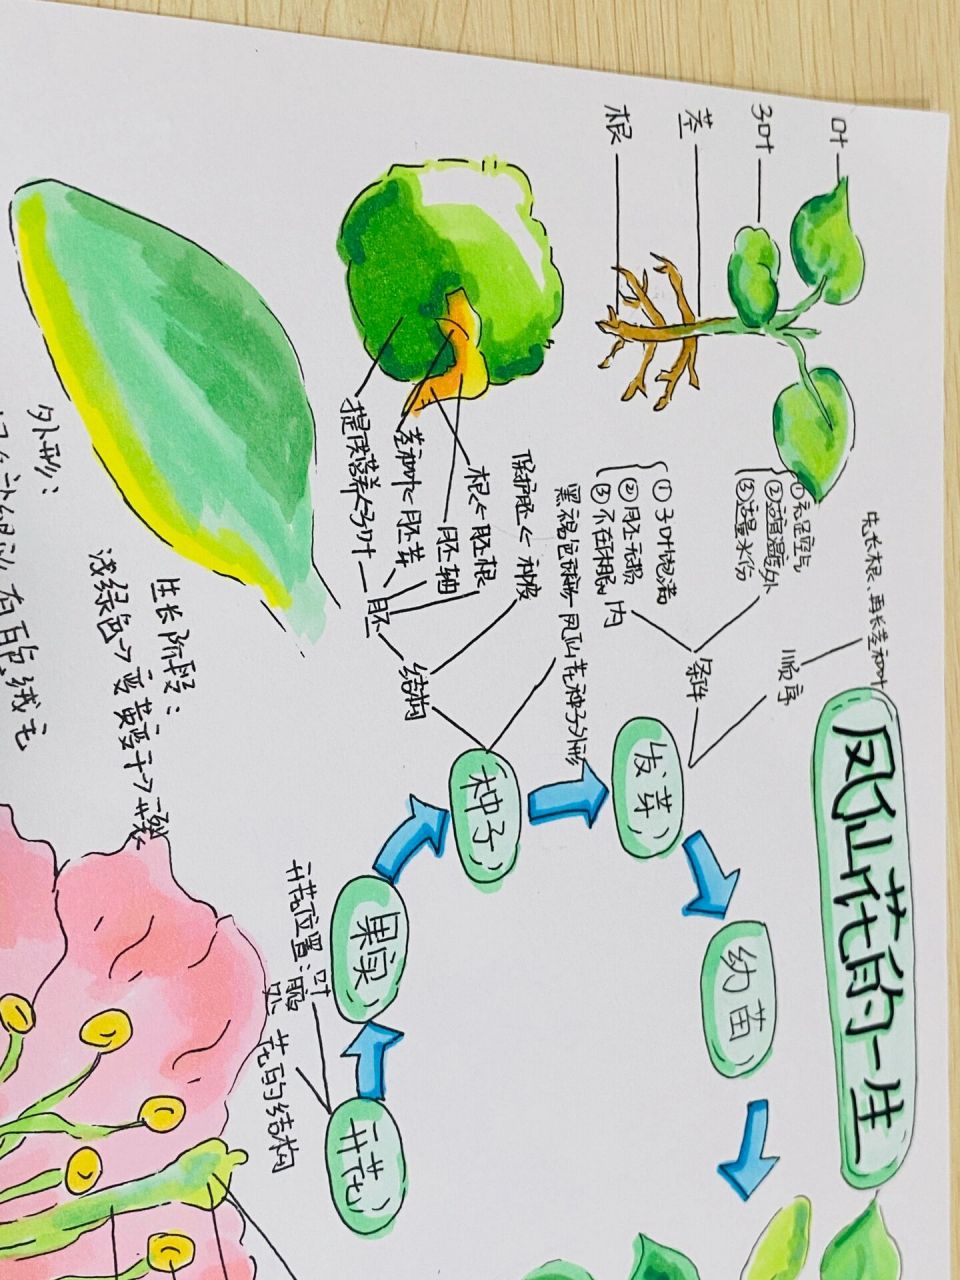 凤仙花的一生
先长根、再长茎和叶
顺序
条件
①充足空气
②适宜温度
③适量水份
外
①子叶饱满
②胚无损
③不在休眠
内
叶
子叶
茎
根
发芽
幼苗
种子
果实
开花
黑褐色球形
凤仙花种子外形
结构
保护胚<种皮
胚
根<胚根
胚轴
茎和叶<胚芽
提供营养<子叶
开花位置:叶腋处
花的结构
生长阶段:
浅绿色→变黄变干→裂
外形:
有白色绒毛